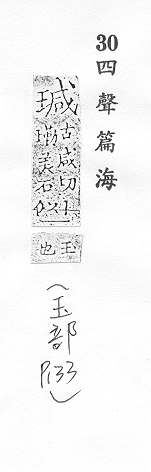 30四聲篇海
瑊
古咸切
美石似
玉也
(玉部P.133)